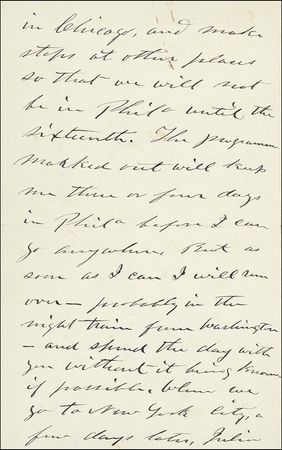 in Chicago, and make
stops at other places
so that we will not
be in Phila until the
sixteenth. The programme
marked out will keep
me three or four days
in Phila before I can
go anywhere. But as
soon as I can I will run
over – probably in the
night train from Washington
– and spend the day with
you without it being known
if possible. When we
go to New York City, a
few days later, Julia